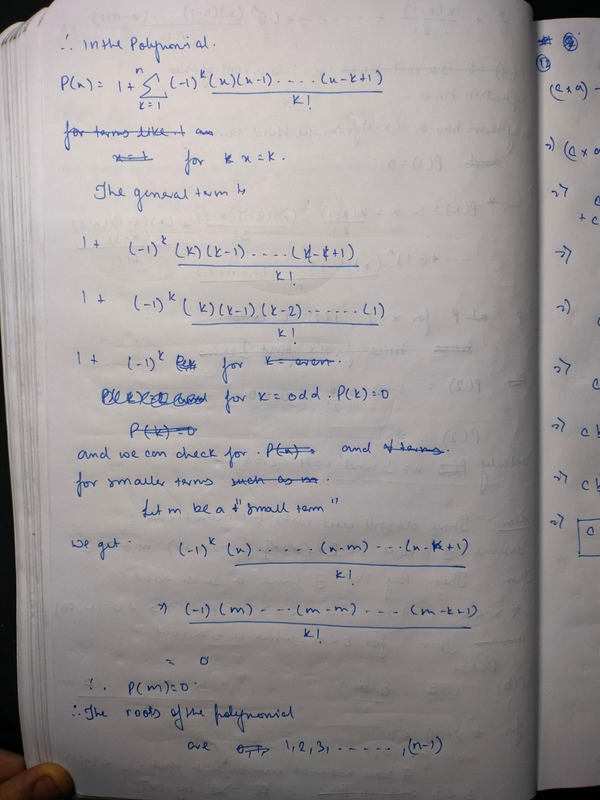 ∴ In the Polynomial.
P(x) = 1 + n∑k=1 (-1)^k (x)(x-1) .... (x-k+1) / k!
for terms like 1 an
x=1 for k x = k.
The general term is
1 + (-1)^k (k)(k-1) .... (k-k+1) / k!
1 + (-1)^k (k)(k-1)(k-2) ...... (1) / k!
1 + (-1)^k for k = even.
for k = odd. P(k)=0
P(k)=0
and we can check for. P(x)= and of terms.
for smaller terms such as m.
Let m be a "small term"
we get. (-1)^k (x) ..... (x-m) ... (x-k+1) / k!
⇒ (-1) (m) - .. (m-m) .... (m-k+1) / k!
= 0
∴ P(m)=0.
∴ The roots of the polynomial
are 0,1, 1,2,3, ......, (n-1)
(c×a) -
⇒ (c×a
⇒ c
+ c
⇒
⇒
⇒ c
⇒ c b
⇒ c b
⇒ c